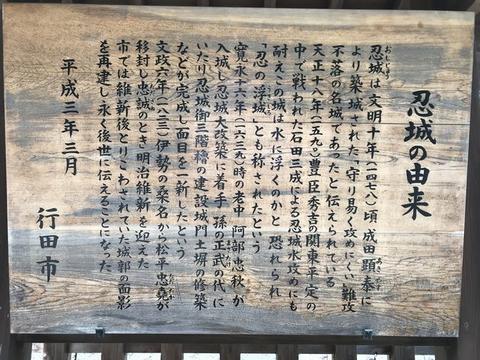 忍城の由来
忍城は文明十年(一四七八)頃、成田顕泰に
より築城された「守り易く攻めにくい難攻
不落の名城であったと伝えられている
天正十八年(一五九〇)豊臣秀吉の関東平定の
中で戦われた石田三成による忍城水攻めにも
耐えこの城は水に浮くのかと恐れられ
「忍の浮城」とも称されたという
寛永十六年(一六三九)時の老中阿部忠秋が
入城し忍城大改築に着手、孫の正武の代に
いたり忍城御三階櫓の建設、城門土塀の修築
などが完成し面目を一新したという
文政六年(一八二三)伊勢の桑名から松平忠堯が
移封し忠誠のとき明治維新を迎えた
市では維新後とりこわされていた城郭の面影
を再建し永く後世に伝えることになった
平成三年三月
行田市